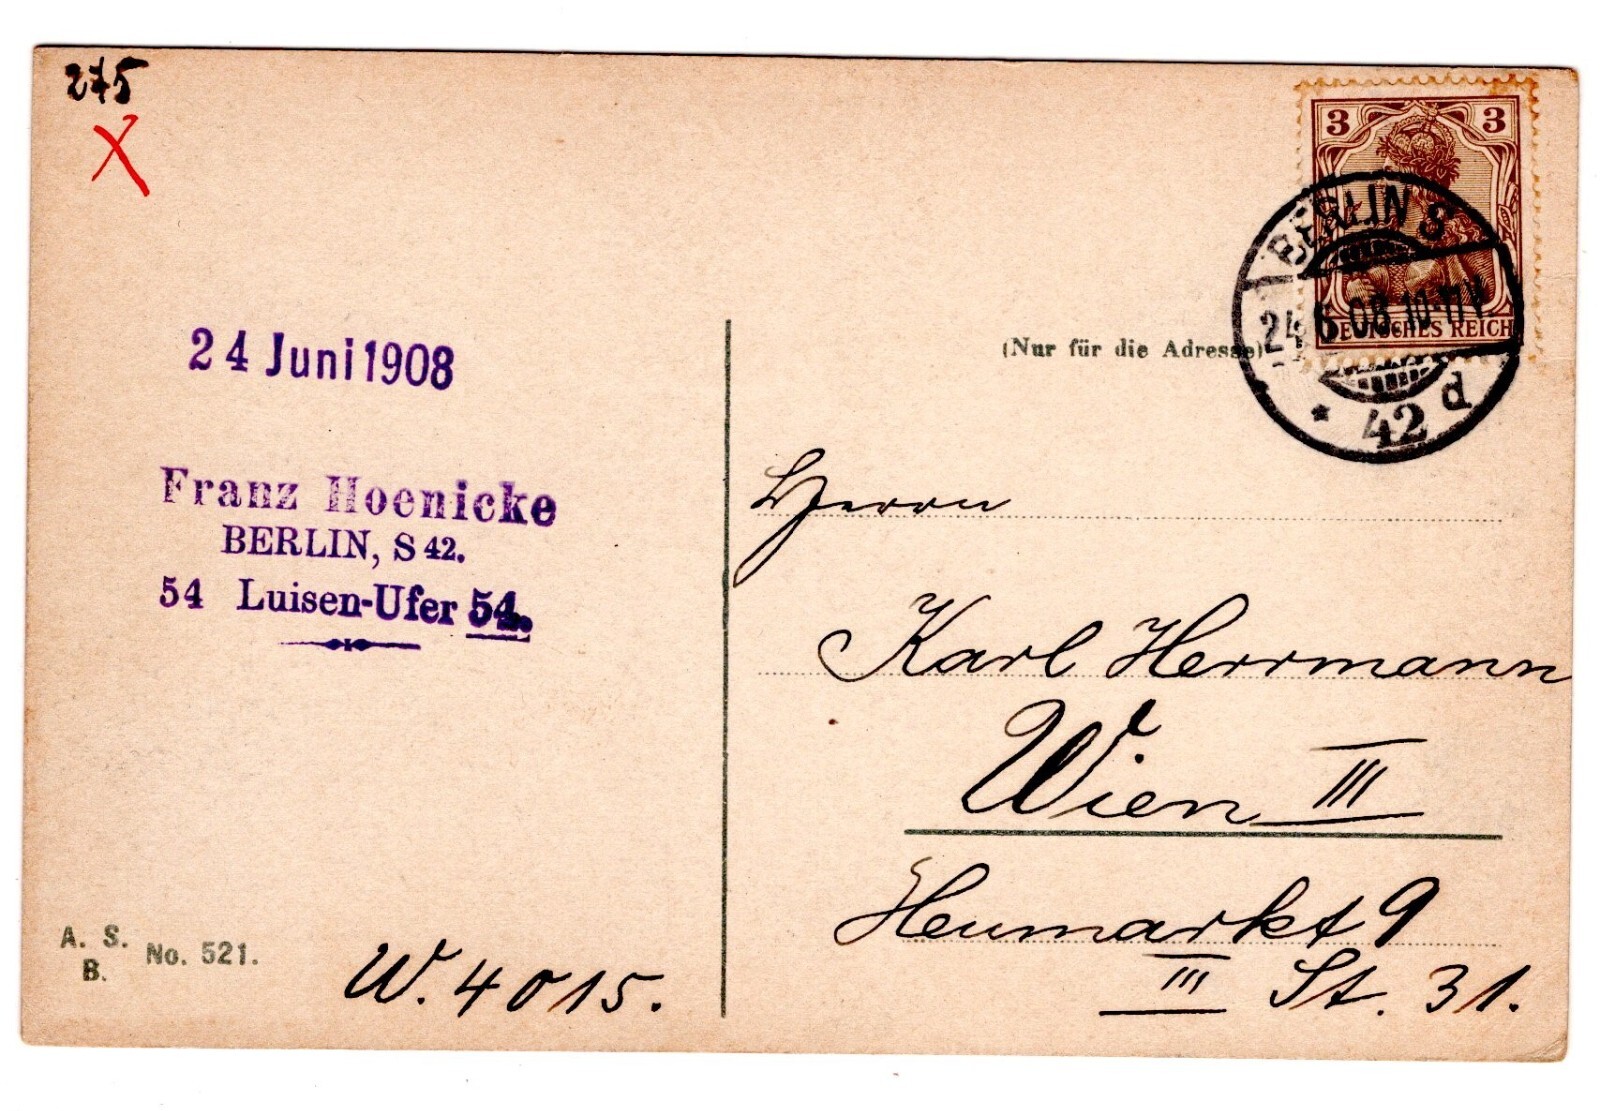 275
X
3 3
DEUTSCHES REICH
BERLIN S
24.6.08.10-11V.
* 42 d
24 Juni 1908
(Nur für die Adresse)
Franz Hoenicke
BERLIN, S 42.
54 Luisen-Ufer 54.
Herrn
Karl Herrmann
Wien III
Heumarkt 9
III St. 31.
A. S.
B. No. 521.
W. 4015.